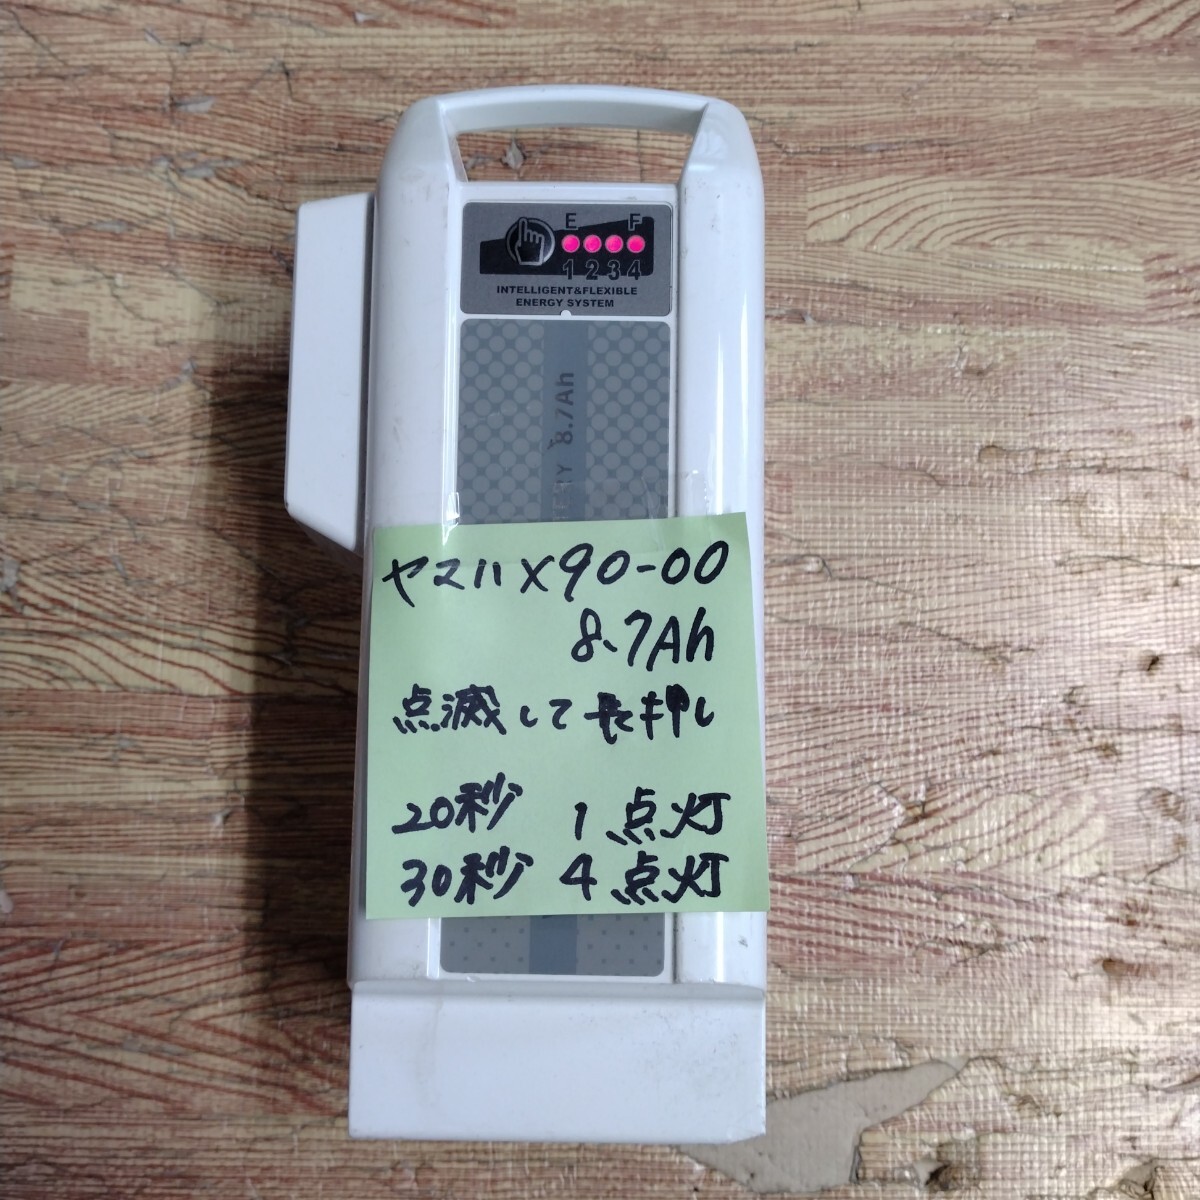 E F
1 2 3 4
INTELLIGENT&FLEXIBLE
ENERGY SYSTEM
8.7Ah
ヤマハ X90-00
8.7Ah
点滅して長押し
20秒 1点灯
30秒 4点灯